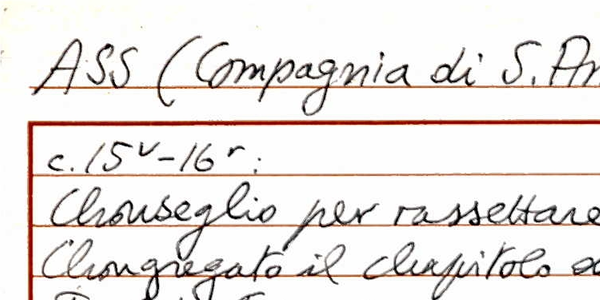 ASS (Compagnia di S. An
c. 15v-16r:
Chonseglio per rassettare
Chongregato il chapitolo